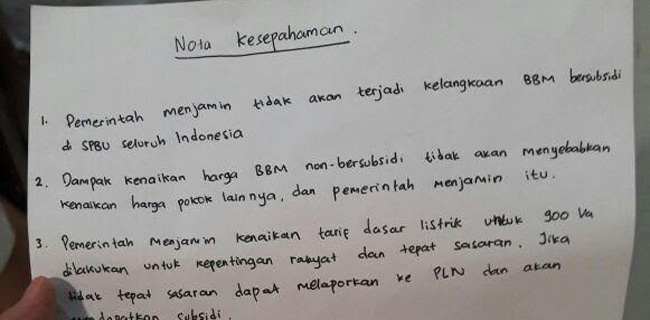 Nota Kesepahaman.
1. Pemerintah menjamin tidak akan terjadi kelangkaan BBM bersubsidi
di SPBU seluruh Indonesia
2. Dampak kenaikan harga BBM non-bersubsidi tidak akan menyebabkan
kenaikan harga pokok lainnya, dan pemerintah menjamin itu.
3. Pemerintah menjamin kenaikan tarif dasar listrik untuk 900 Va
dilakukan untuk kepentingan rakyat dan tepat sasaran. Jika
tidak tepat sasaran dapat melaporkan ke PLN dan akan
mendapatkan subsidi.